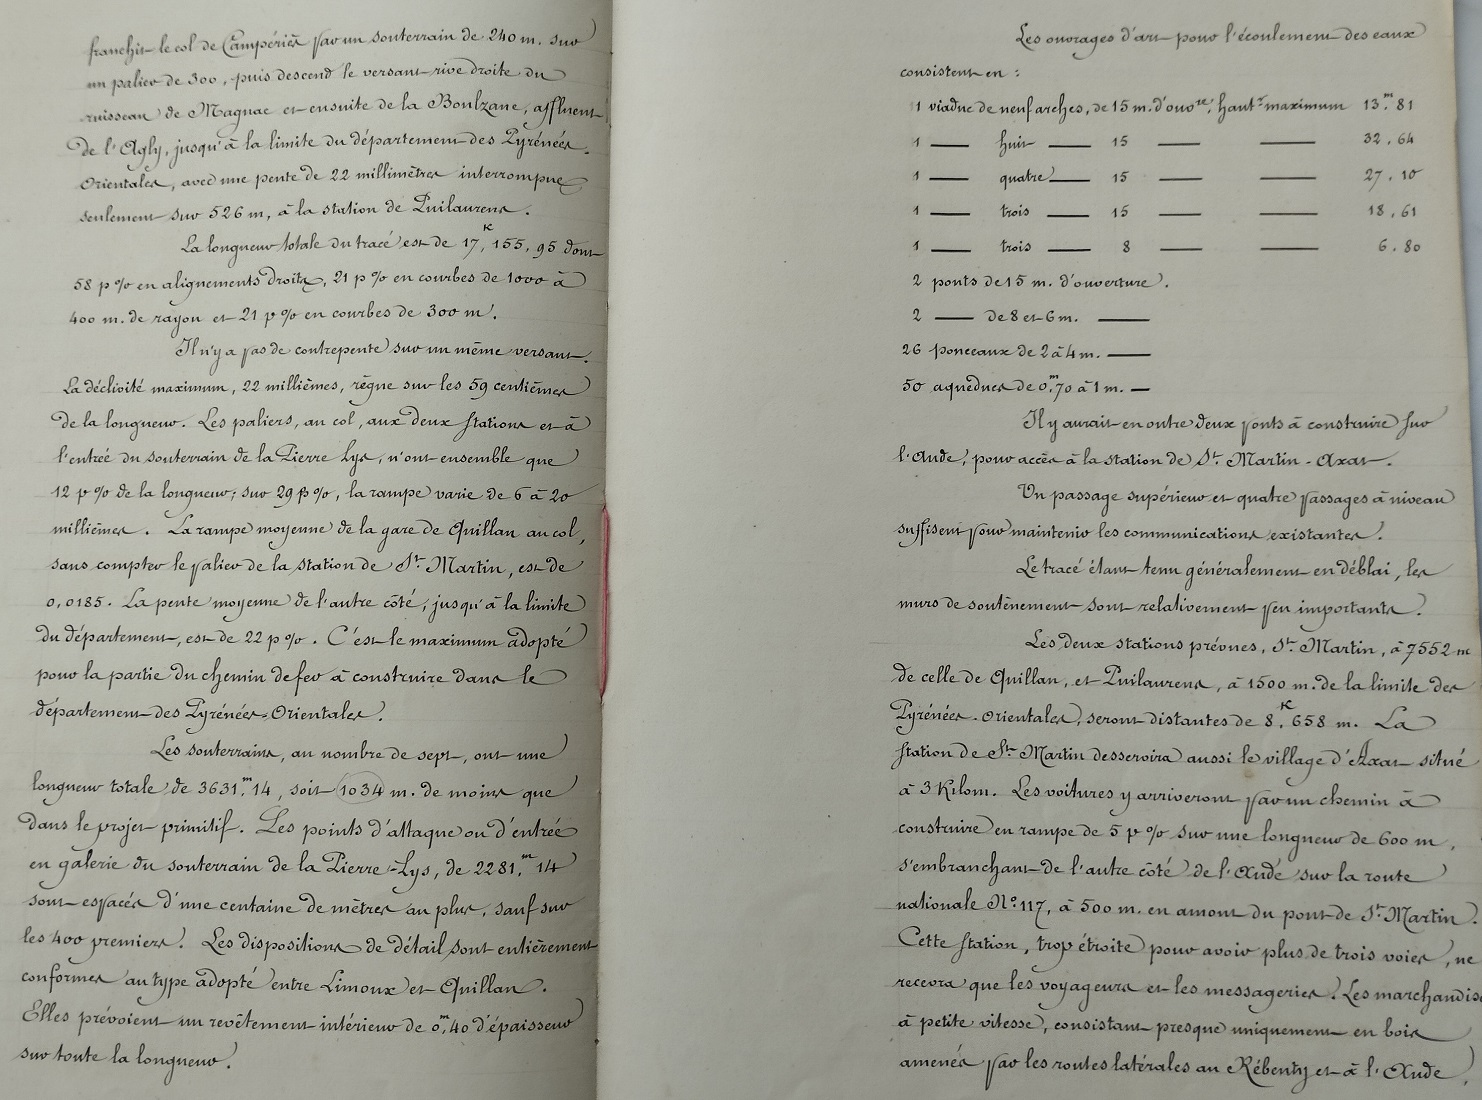 franchit le col de Campériès par un souterrain de 240 m. sur
un palier de 300, puis descend le versant rive droite du
ruisseau de Magnac et ensuite de la Boulzane, affluent
de l'Agly, jusqu'à la limite du département des Pyrénées-
Orientales, avec une pente de 22 millimètres interrompue
seulement sur 526 m, à la station de Puilaurens.
La longueur totale du tracé est de 17.K 155,95 dont
58 p % en alignements droits, 21 p % en courbes de 1000 à
400 m. de rayon et 21 p % en courbes de 300 m.
Il n'y a pas de contrepente sur un même versant.
La déclivité maximum, 22 millièmes, règne sur les 59 centièmes
de la longueur. Les paliers, au col, aux deux stations et à
l'entrée du souterrain de la Pierre Lys, n'ont ensemble que
12 p % de la longueur; sur 29 p %, la rampe varie de 6 à 20
millièmes. La rampe moyenne de la gare de Quillan au col,
sans compter le palier de la station de St. Martin, est de
0,0185. La pente moyenne de l'autre côté, jusqu'à la limite
du département, est de 22 p %. C'est le maximum adopté
pour la partie du chemin de fer à construire dans le
département des Pyrénées-Orientales.
Les souterrains, au nombre de sept, ont une
longueur totale de 3631.m 14, soit 1034 m. de moins que
dans le projet primitif. Les points d'attaque ou d'entrée
en galerie du souterrain de la Pierre-Lys, de 2281.m 14
sont espacés d'une centaine de mètres au plus, sauf sur
les 400 premiers. Les dispositions de détail sont entièrement
conformes au type adopté entre Limoux et Quillan.
Elles prévoient un revêtement intérieur de 0,m40 d'épaisseur
sur toute la longueur.
Les ouvrages d'art pour l'écoulement des eaux
consistent en :
1 viaduc de neuf arches, de 15 m. d'ouvre, hautr maximum 13.m 81
1 — huit — 15 — — 32.64
1 — quatre — 15 — — 27.10
1 — trois — 15 — — 18.61
1 — trois — 8 — — 6.80
2 ponts de 15 m. d'ouverture.
2 — de 8 et 6 m. —
26 ponceaux de 2 à 4 m. —
50 aqueducs de 0,m70 à 1 m. —
Il y aurait en outre deux ponts à construire sur
l'Aude, pour accès à la station de St. Martin-Axat.
Un passage supérieur et quatre passages à niveau
suffisent pour maintenir les communications existantes.
Le tracé étant tenu généralement en déblai, les
murs de soutènement sont relativement peu importants.
Les deux stations prévues, St. Martin, à 7552 m
de celle de Quillan, et Puilaurens, à 1500 m. de la limite des
Pyrénées-Orientales, seront distantes de 8.K 658 m. La
station de St. Martin desservira aussi le village d'Axat situé
à 3 Kilom. Les voitures y arriveront par un chemin à
construire en rampe de 5 p % sur une longueur de 600 m,
s'embranchant de l'autre côté de l'Aude sur la route
nationale No. 117, à 500 m. en amont du pont de St. Martin.
Cette station, trop étroite pour avoir plus de trois voies, ne
recevra que les voyageurs et les messageries. Les marchandises
à petite vitesse, consistant presque uniquement en bois
amenés par les routes latérales au Rébenty et à l'Aude,